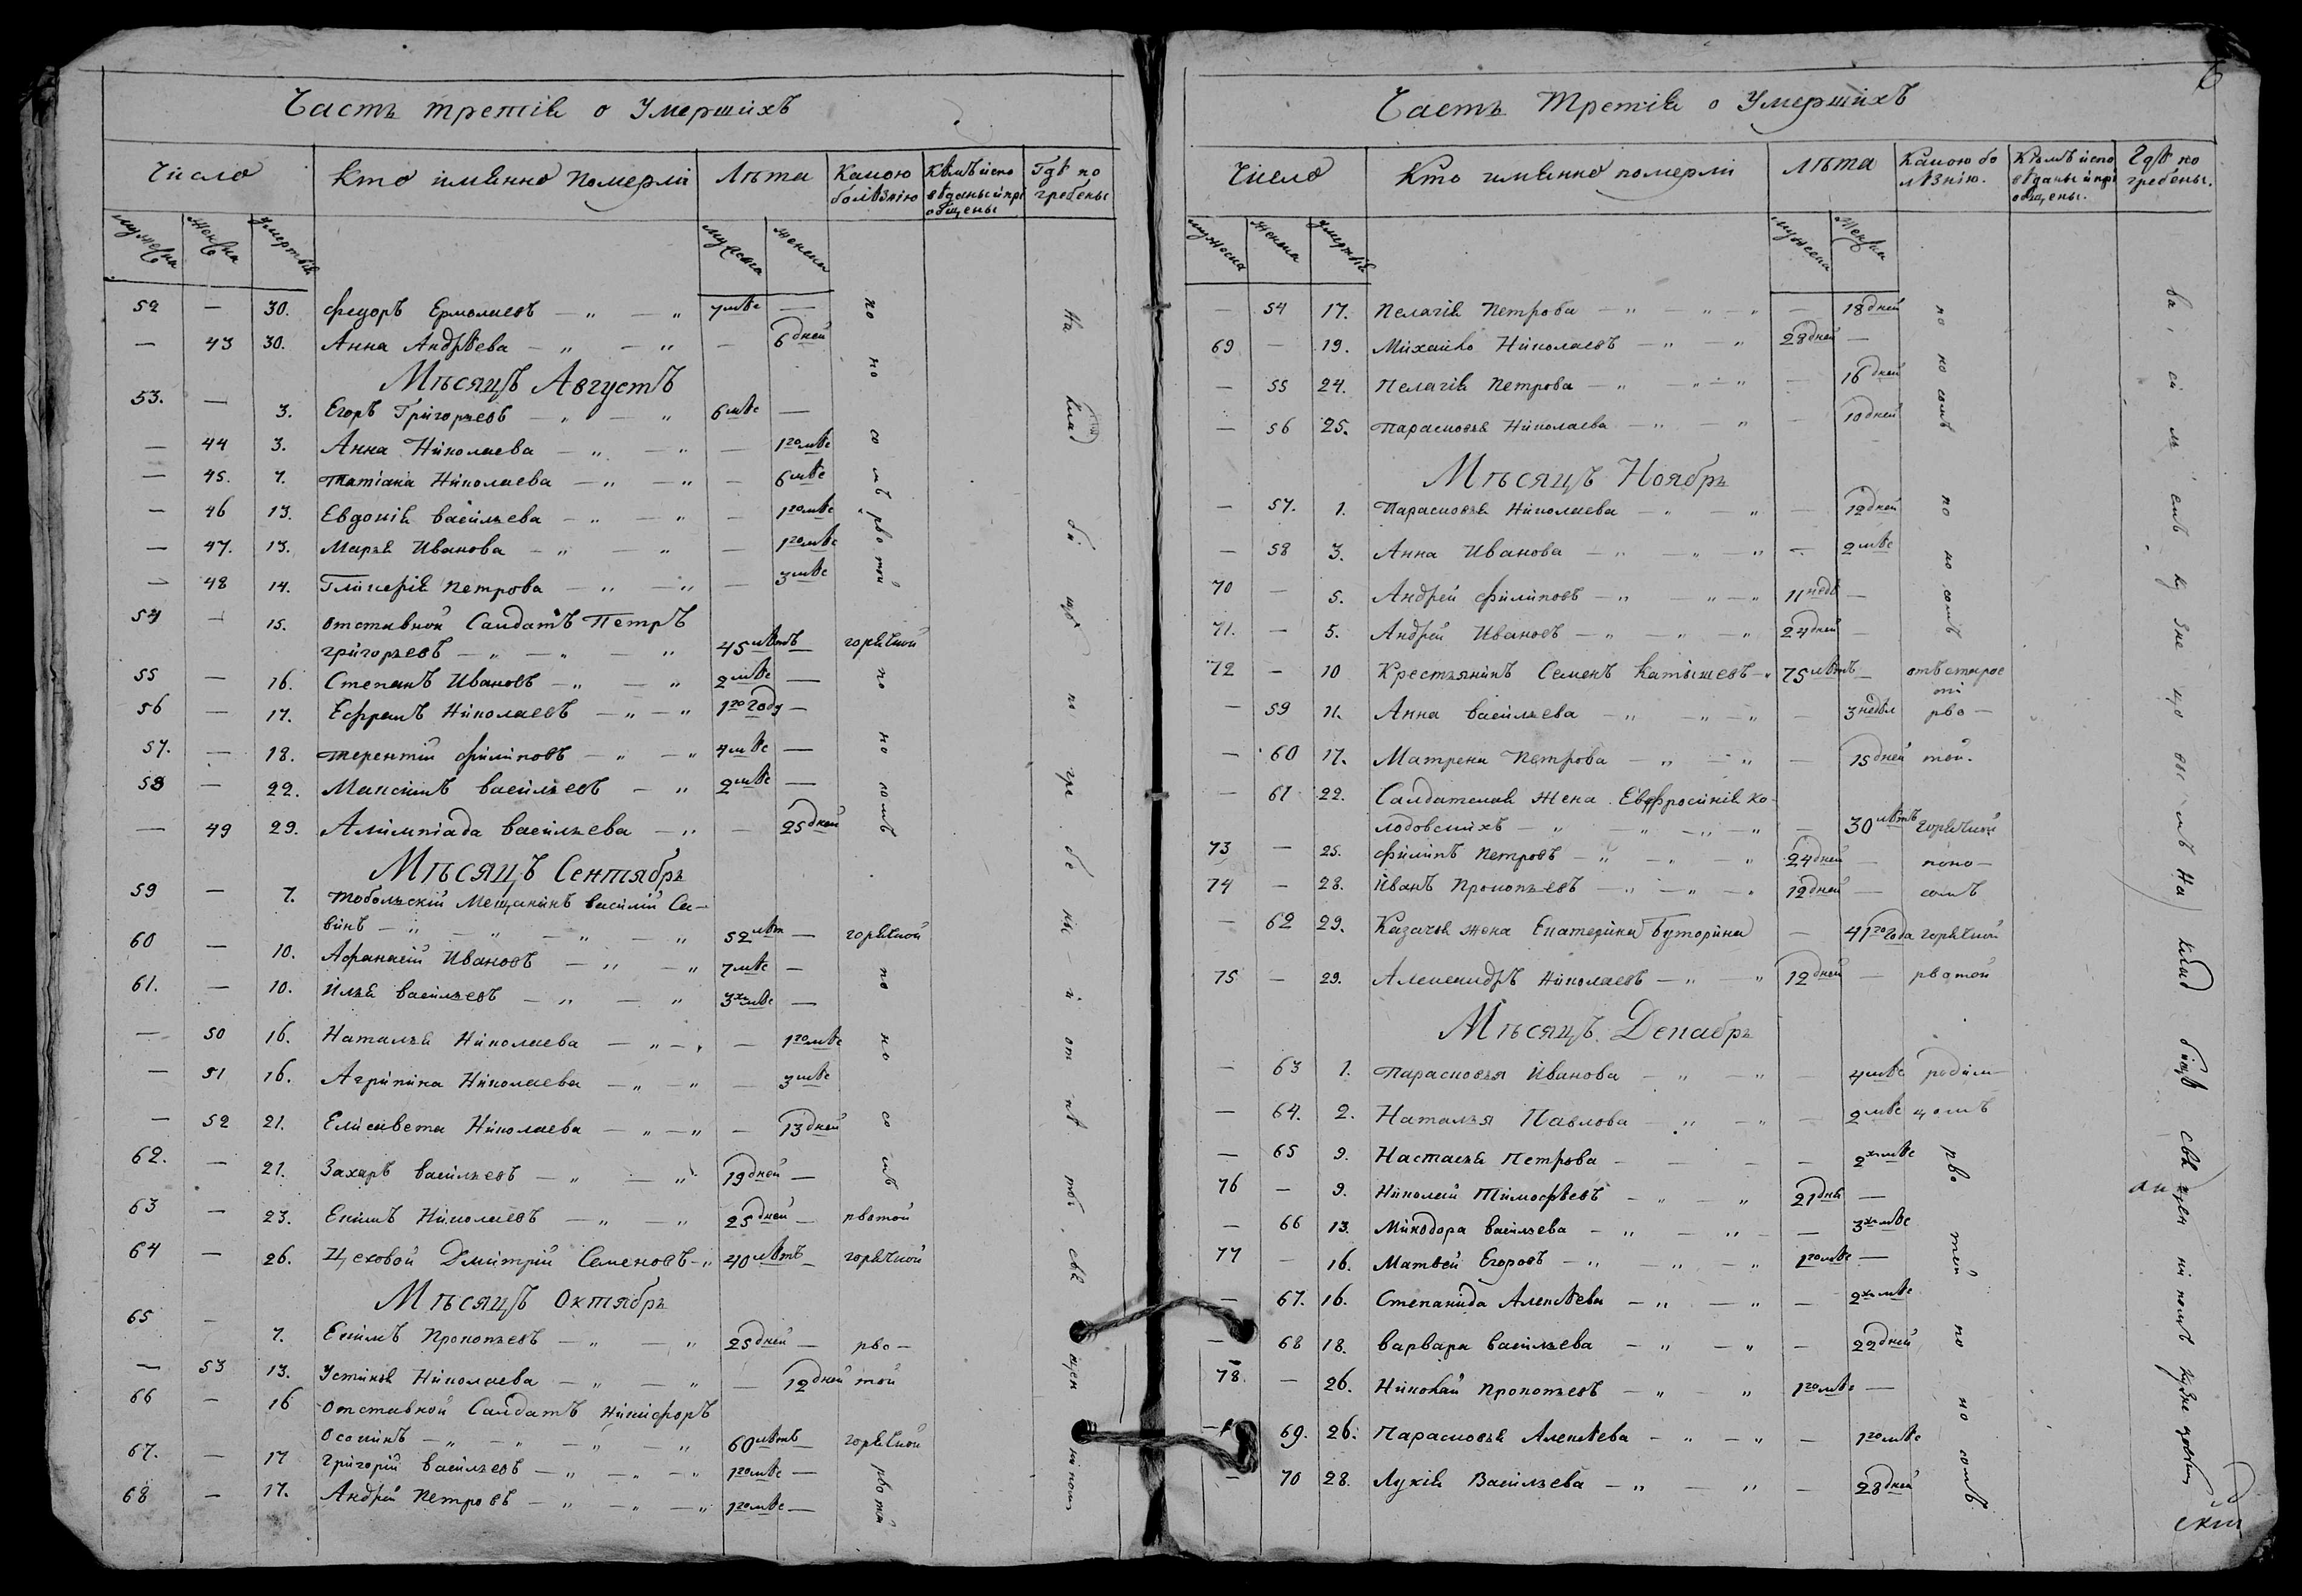 Часть третія о Умершихъ
Число
Кто имянно померли
Лѣта
Какою болѣзнію
Кѣмъ испо вѣданы и прі общены
Гдѣ по гребены
мужеска
женска
умертвія
мужеска
женска
52 — 30. Федоръ Ермолаевъ — „ — „ 7 мѣс —
— 43 30. Анна Андрѣева — „ — „ — 6 дней
Мѣсяцъ Августъ
53. — 3. Егоръ Григорьевъ — „ — „ 6 мѣс —
— 44 3. Анна Николаева — „ — „ — 1го мѣс
— 45. 7. Татіана Николаева — „ — „ — 6 мѣс
— 46 13. Евдокія Васильева — „ — „ — 1го мѣс
— 47. 13. Марья Иванова — „ — „ — 1го мѣс
— 48 14. Гликерія Петрова — „ — „ — 3 мѣс
поносомъ рвотой
54 — 15. Отставной Салдатъ Петръ
Григорьевъ — „ — „ — „ 45 лѣтъ — горячкой
55 — 16. Степанъ Ивановъ — „ — „ 2 мѣс —
56 — 17. Ефремъ Николаевъ — „ — „ 1го году —
57. — 18. Терентій Филиповъ — „ — „ 4 мѣс —
58 — 22. Максимъ Васильевъ — „ 2 мѣс —
— 49 29. Алимпіада Васильева — „ — 25 дней
поносомъ
Мѣсяцъ Сентябрь
59 — 7. Тобольскій Мещанинъ Василій Са-
винъ — „ — „ — „ — „ 52 лѣт — горячкой
60 — 10. Афанасій Ивановъ — „ — „ 7 мѣс —
61. — 10. Илья Васильевъ — „ — „ 3хъ мѣс —
— 50 16. Наталья Николаева — „ — „ — 1го мѣс
— 51 16. Агрипина Николаева — „ — „ — 3 мѣс
— 52 21. Елисавета Николаева — „ — „ — 13 дней
62. — 21. Захаръ Васильевъ — „ — „ 19 дней —
поносомъ
63 — 23. Екимъ Николаевъ — „ — „ 25 дней — рвотой
64 — 26. Цеховой Дмитрій Семеновъ — „ 40 лѣтъ — горячкой
Мѣсяцъ Октябрь
65 — 7. Екимъ Прокопьевъ — „ — „ 25 дней — рво-
— 53 13. Устинья Николаева — „ — „ — 12 дней той
66 — 16 Отставной Салдатъ Никифоръ
Осокинъ — „ — „ — „ — „ 60 лѣтъ — горячкой
67. — 17 Григорій Васильевъ — „ — „ — „ 1го мѣс —
68 — 17. Андрей Петровъ — „ — „ — „ 1го мѣс —
рвотой
На кладбищѣ погребены и отпѣты
Часть Третія о Умершихъ
Число
Кто имянно померли
Лѣта
Какою бо лѣзнію.
Кѣмъ испо вѣданы и прі общены.
Гдѣ по гребены.
мужеска
женска
умертвія
мужеска
женска
— 54 17. Пелагія Петрова — „ — „ — „ — 18 дней
69 — 19. Михайло Николаевъ — „ — „ 28 дней —
— 55 24. Пелагія Петрова — „ — „ — „ — 16 дней
— 56 25. Парасковья Николаева — „ — „ — 10 дней
поносомъ
Мѣсяцъ Ноябрь
— 57. 1. Парасковья Николаева — „ — „ — 12 дней
— 58 3. Анна Иванова — „ — „ — „ — 2 мѣс
70 — 5. Андрей Филиповъ — „ — „ — „ 11 недѣ —
71. — 5. Андрей Ивановъ — „ — „ — „ 24 дней —
поносомъ
72 — 10 Крестьянинъ Семенъ Катышевъ — „ 75 лѣтъ — отъ старос ти
— 59 11. Анна Васильева — „ — „ — „ — 3 недѣл рво-
— 60 17. Матрена Петрова — „ — „ — 15 дней той.
— 61 22. Салдатская жена Евфросинія Ко-
лодовскихъ — „ — „ — „ — „ — 30 лѣтъ горячкой
73 — 25. Филипъ Петровъ — „ — „ — „ 24 дней — поно-
74 — 28. Иванъ Прокопьевъ — „ — „ — „ 12 дней — сомъ
— 62 29. Казачья жена Екатерина Буторина — 41го года горячкой
75 — 29. Александръ Николаевъ — „ — „ 12 дней — рвотой
Мѣсяцъ Декабрь
— 63 1. Парасковья Иванова — „ — „ — 4 мѣс родим-
— 64. 2. Наталья Павлова — „ — „ — 2 мѣс цомъ
— 65 9. Настасья Петрова — — — — 2хъ мѣс
76 — 9. Николай Тимофѣевъ — „ — „ 21 дня —
— 66 13. Минодора Васильева — „ — „ — — 3хъ мѣс
77 — 16. Матвей Егоровъ — „ — „ — „ 1го мѣс —
— 67. 16. Степанида Алексѣева — „ — „ — 2хъ мѣс
— 68 18. Варвара Васильева — „ — „ — 22 дней
78. — 26. Николай Прокопьевъ — „ — „ 1го мѣс —
— 69. 26. Парасковья Алексѣева — „ — „ — 1го мѣс
— 70 28. Лукія Васильева — „ — „ — 28 дней
рвотой поносомъ